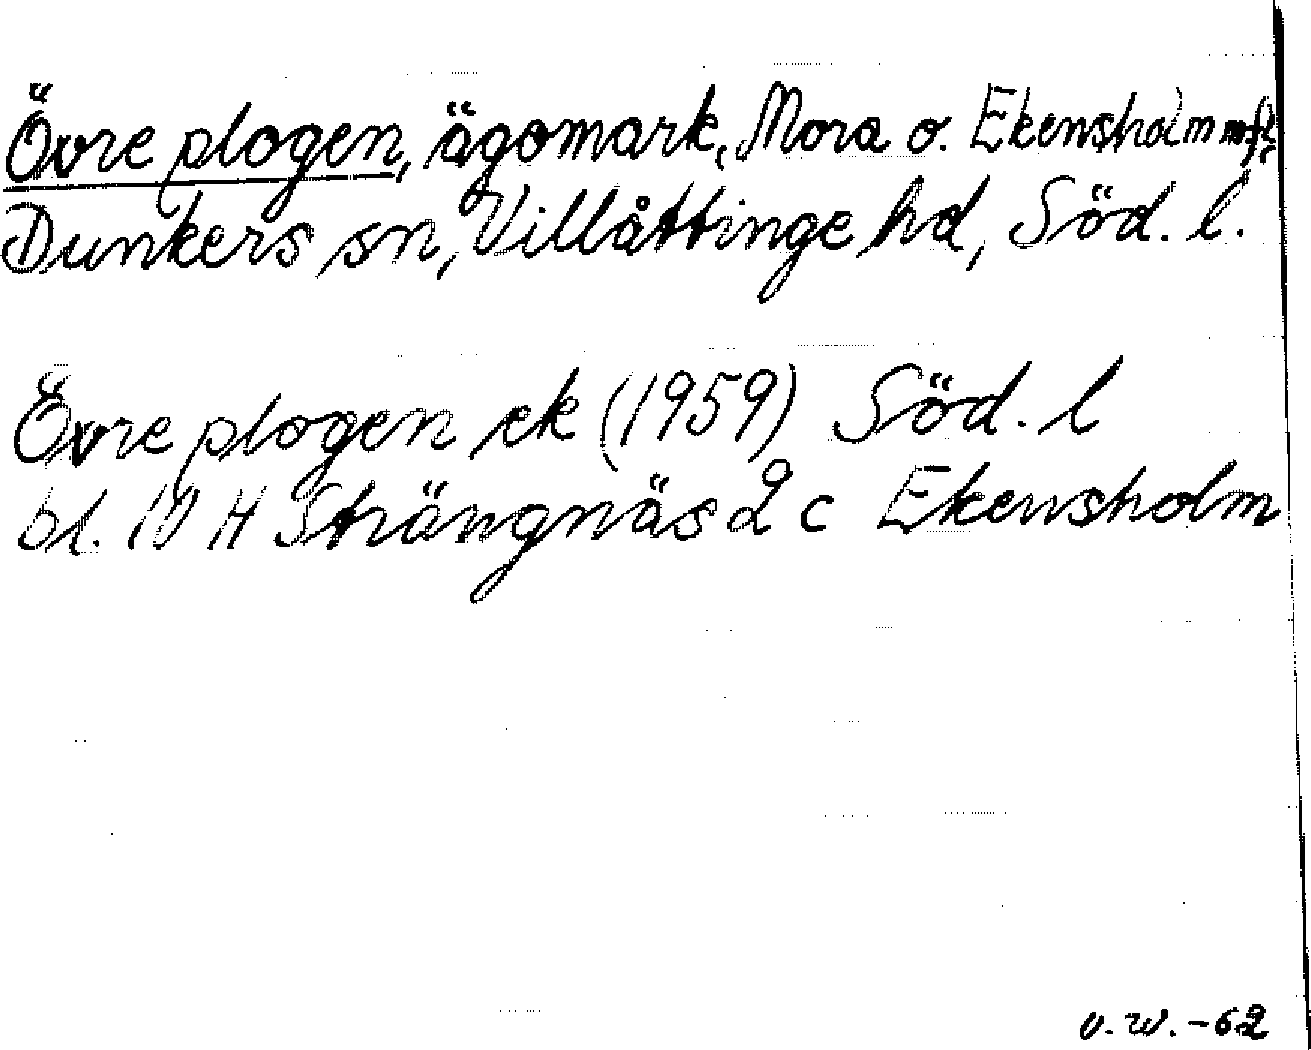 Övre plogen, ägomark, Mora o. Ekensholm m fl.
Dunkers sn, Villåttinge hd, Söd. l.
Övre plogen ek (1959) Söd. l
bl. IV H Strängnäs 2 c Ekensholm
v. W. -62